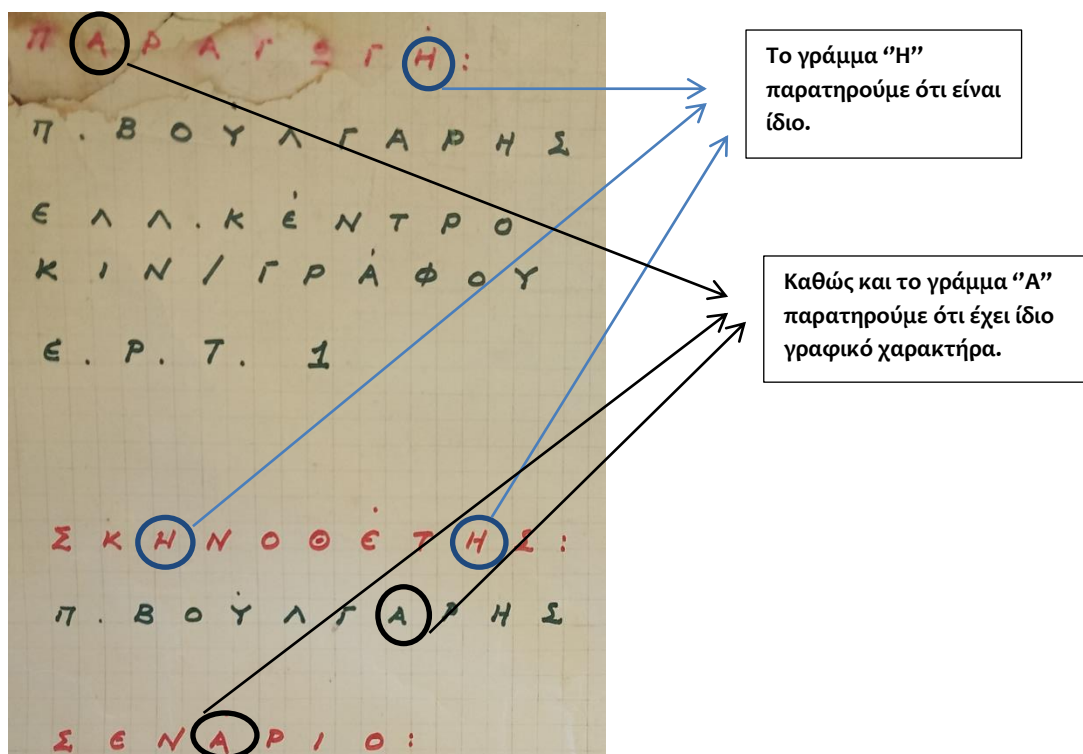 ΠΑΡΑΓΩΓΉ:
Π.ΒΟΎΛΓΑΡΗΣ
ΕΛΛ.ΚΈΝΤΡΟ
ΚΙΝ/ΓΡΆΦΟΥ
Ε.Ρ.Τ. 1
ΣΚΗΝΟΘΈΤΗΣ:
Π.ΒΟΎΛΓΑΡΗΣ
ΣΕΝΑΡΙΟ:
Το γράμμα ‘’Η’’
παρατηρούμε ότι είναι
ίδιο.
Καθώς και το γράμμα ‘’Α’’
παρατηρούμε ότι έχει ίδιο
γραφικό χαρακτήρα.